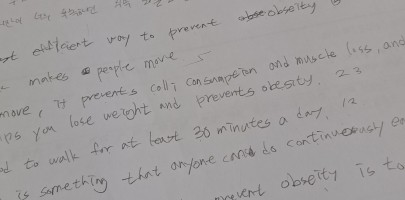 st efficient way to prevent obseity
makes people move 5
move, it prevents colli consumption and muscle loss, and
ps you lose weight and prevents obesity. 23
d to walk for at least 30 minutes a day. 12
is something that anyone can do continuously
prevent obseity is to